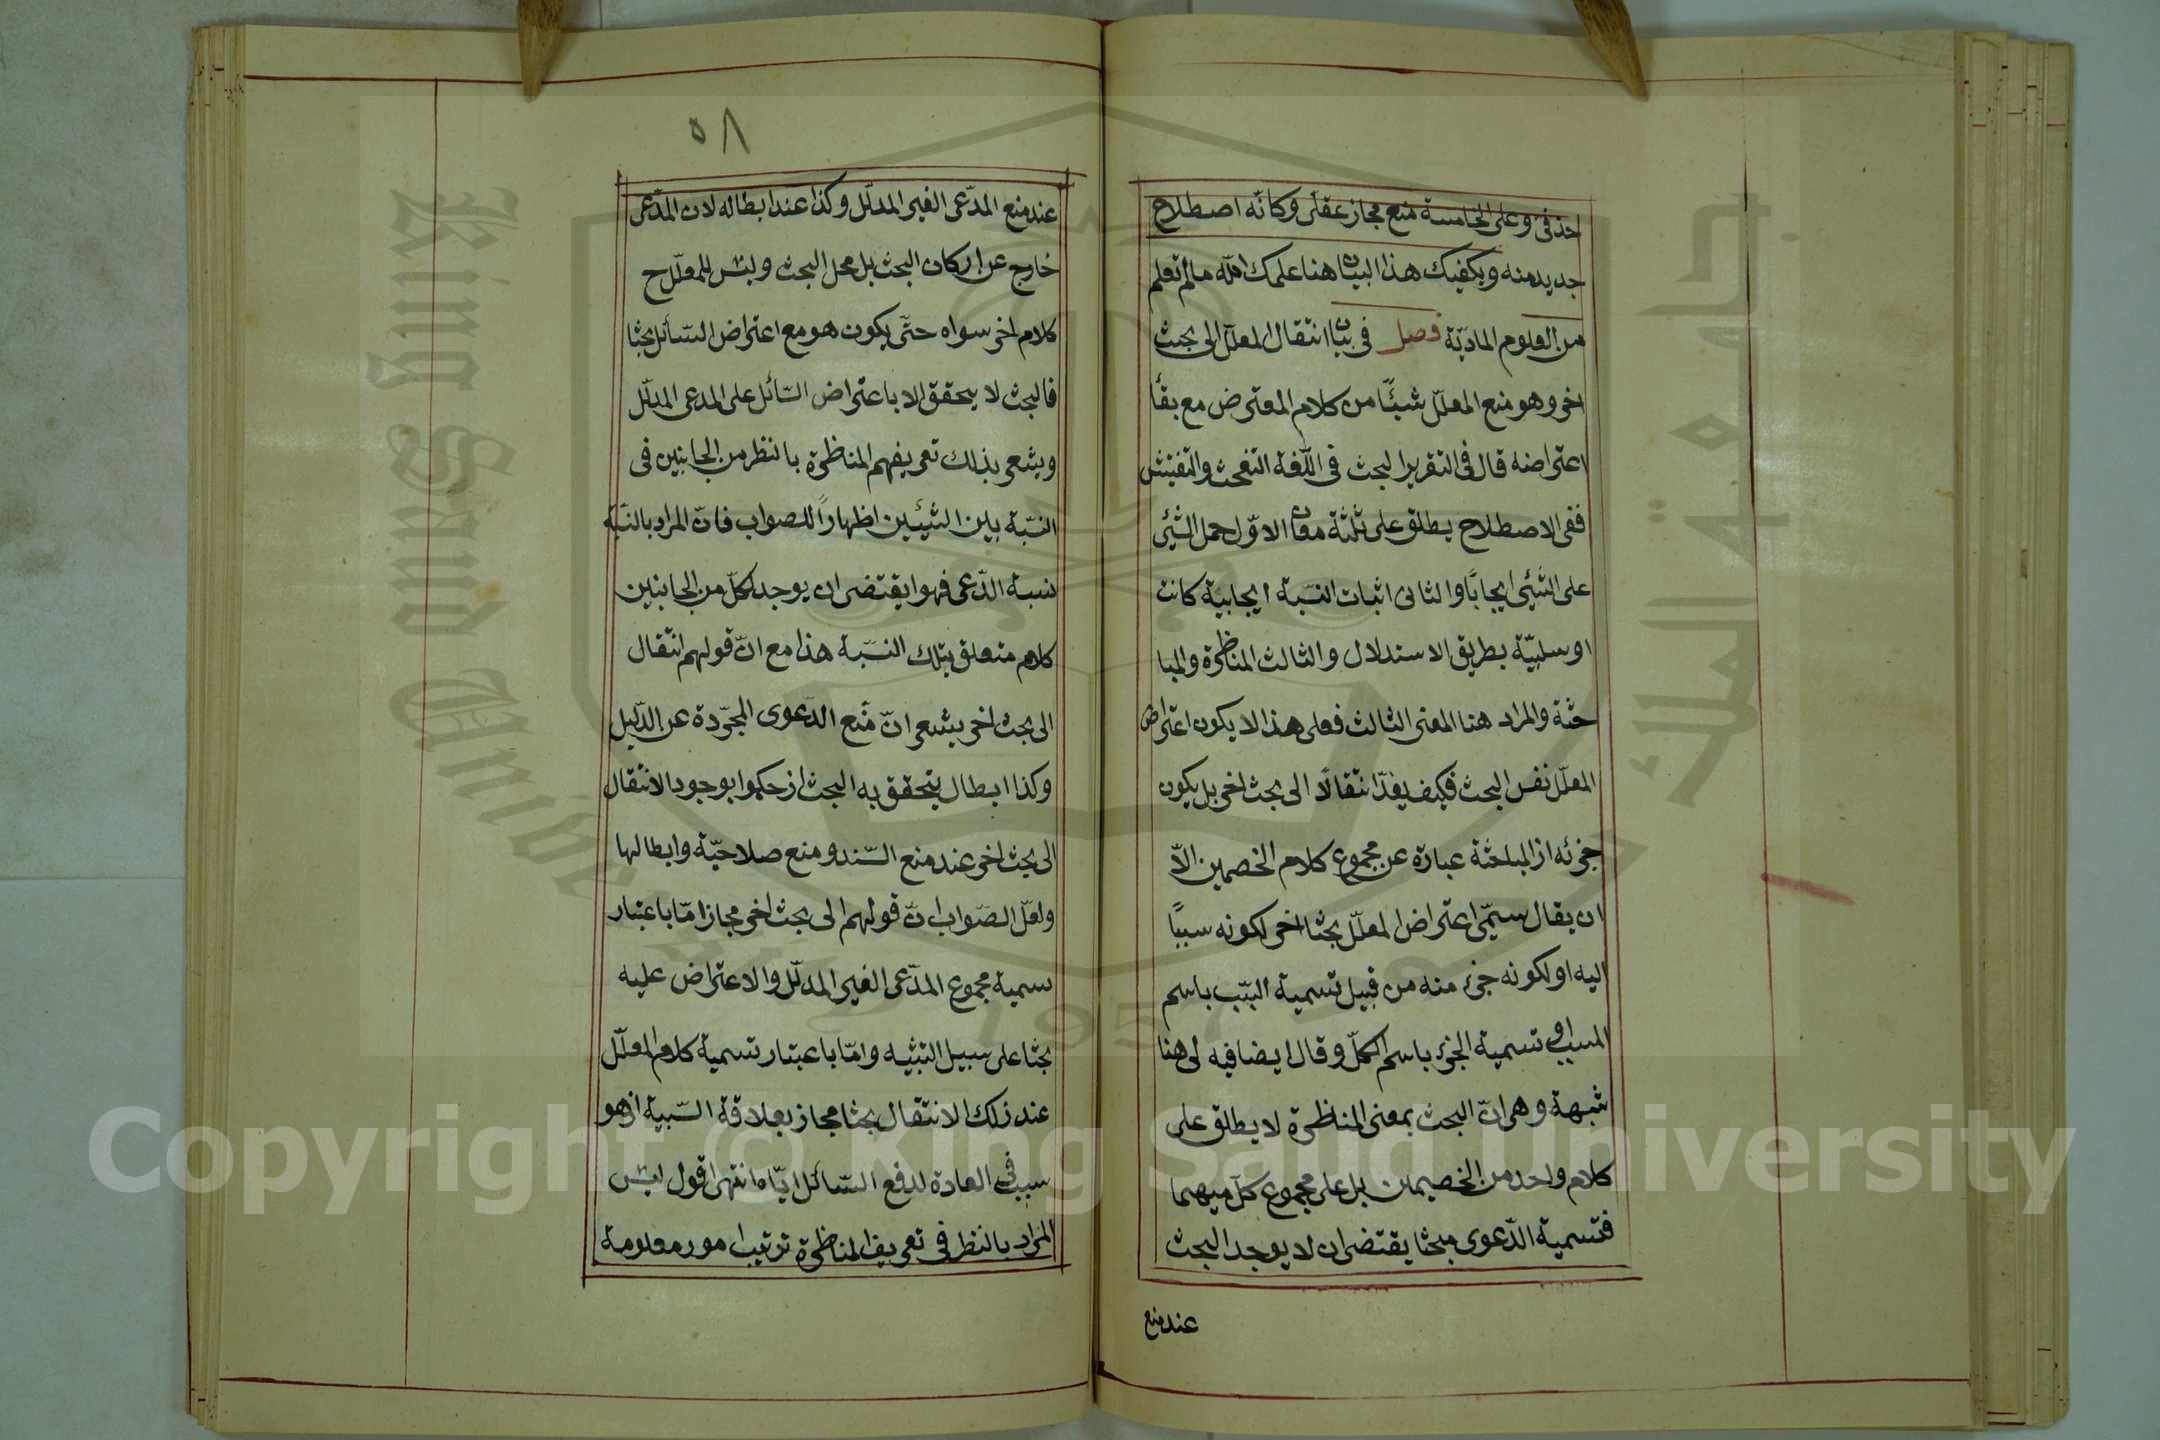 حذفى وعلى الخامسة منع مجاز عقلى وكانّه اصطلاح
جديد منه ويكفيك هذا البيان هنا علمك الله مالم تعلم
من العلوم المادّيّة فصل فى بيان انتقال المعلّل الى بحث
اخر وهو منع المعلّل شيئًا من كلام المعترض مع بقأ
اعتراضه قال فى التقرير البحث فى اللّغة التفحّث والتفتيش
ففى الاصطلاح يطلق على ثلثة معان الاوّل حمل الشّيئ
على الشّيئ ايجابًا والثانى اثبات النسّبة ايجابية كانت
او سلبيّة بطريق الاستدلال والثالث المناظرة والمبا
حثة والمراد هنا المعنى الثالث فعلى هذا لا يكون اعتراض
المعلّل نفس البحث فكيف يعدّ انتقالًا الى بحث اخر بل يكون
جزئه از المباحثة عبارة عن مجموع كلام الخصمين الاّ
ان يقال سمّى اعتراض المعلّل بحثا اخر لكونه سببًا
اليه او لكونه جزء منه من قبيل تسمية السّبب باسم
المسبب او تسمية الجزء باسم الكلّ وقال ايضا فيه لى هنا
شبهة وهى انّ البحث بمعنى المناظرة لا يطلق على
كلام واحد من الخصيمين بل على مجموع كلّ ميهما
فتسمية الدّعوى مبحثا يقتضى ان لا يوجد البحث
عند منع
٥٨
عند منع المدّعى الغير المدلّل وكذا عند ابطاله لان المدّعى
خارج عن اركان البحث بل محل البحث وليس للمعلّل ح
كلام اخر سواه حتّى يكون هو مع اعتراض السّائل بحثا
فالبحث لا يتحقق الا باعتراض السّائل على المدعى المدلّل
ويشعر بذلك تعريفهم المناظرة بالنظر من الجانبين فى
النسّبة بين الشّيئين اظهاراً للصواب فانّ المراد بالنسّبة
نسبة الدّعى فهو يقتضى ان يوجد لكلّ من الجانبين
كلام متعلق بتلك النسّبة هذا مع انّ قولهم انتقال
الى بحث اخر يشعر انّ مَنع الدّعوى المجرّدة عن الدّليل
وكذا ابطال يتحقق به البحث از حكموا بوجود الانتقال
الى بحث اخر عند منع السّند ومنع صلاحيّة وابطالها
ولعلّ الصّواب انّ قولهم الى بحث اخر مجاز امّا باعتبار
تسمية مجموع المدّعى الغير المدلّل والاعتراض عليه
بحثا على سبيل التشبيه وامّا باعتبار تسمية كلام المعلّل
عند زلك الانتقال بحثا مجاز بعلاقة السّببية از هو
سبب فى العادة لدفع السّائل ايّاه انتهى اقول ليس
المراد بالنظر فى تعريف المناظرة ترتيب امور معلومة
King Saud University
جامعة الملك
1957
Copyright © King Saud University